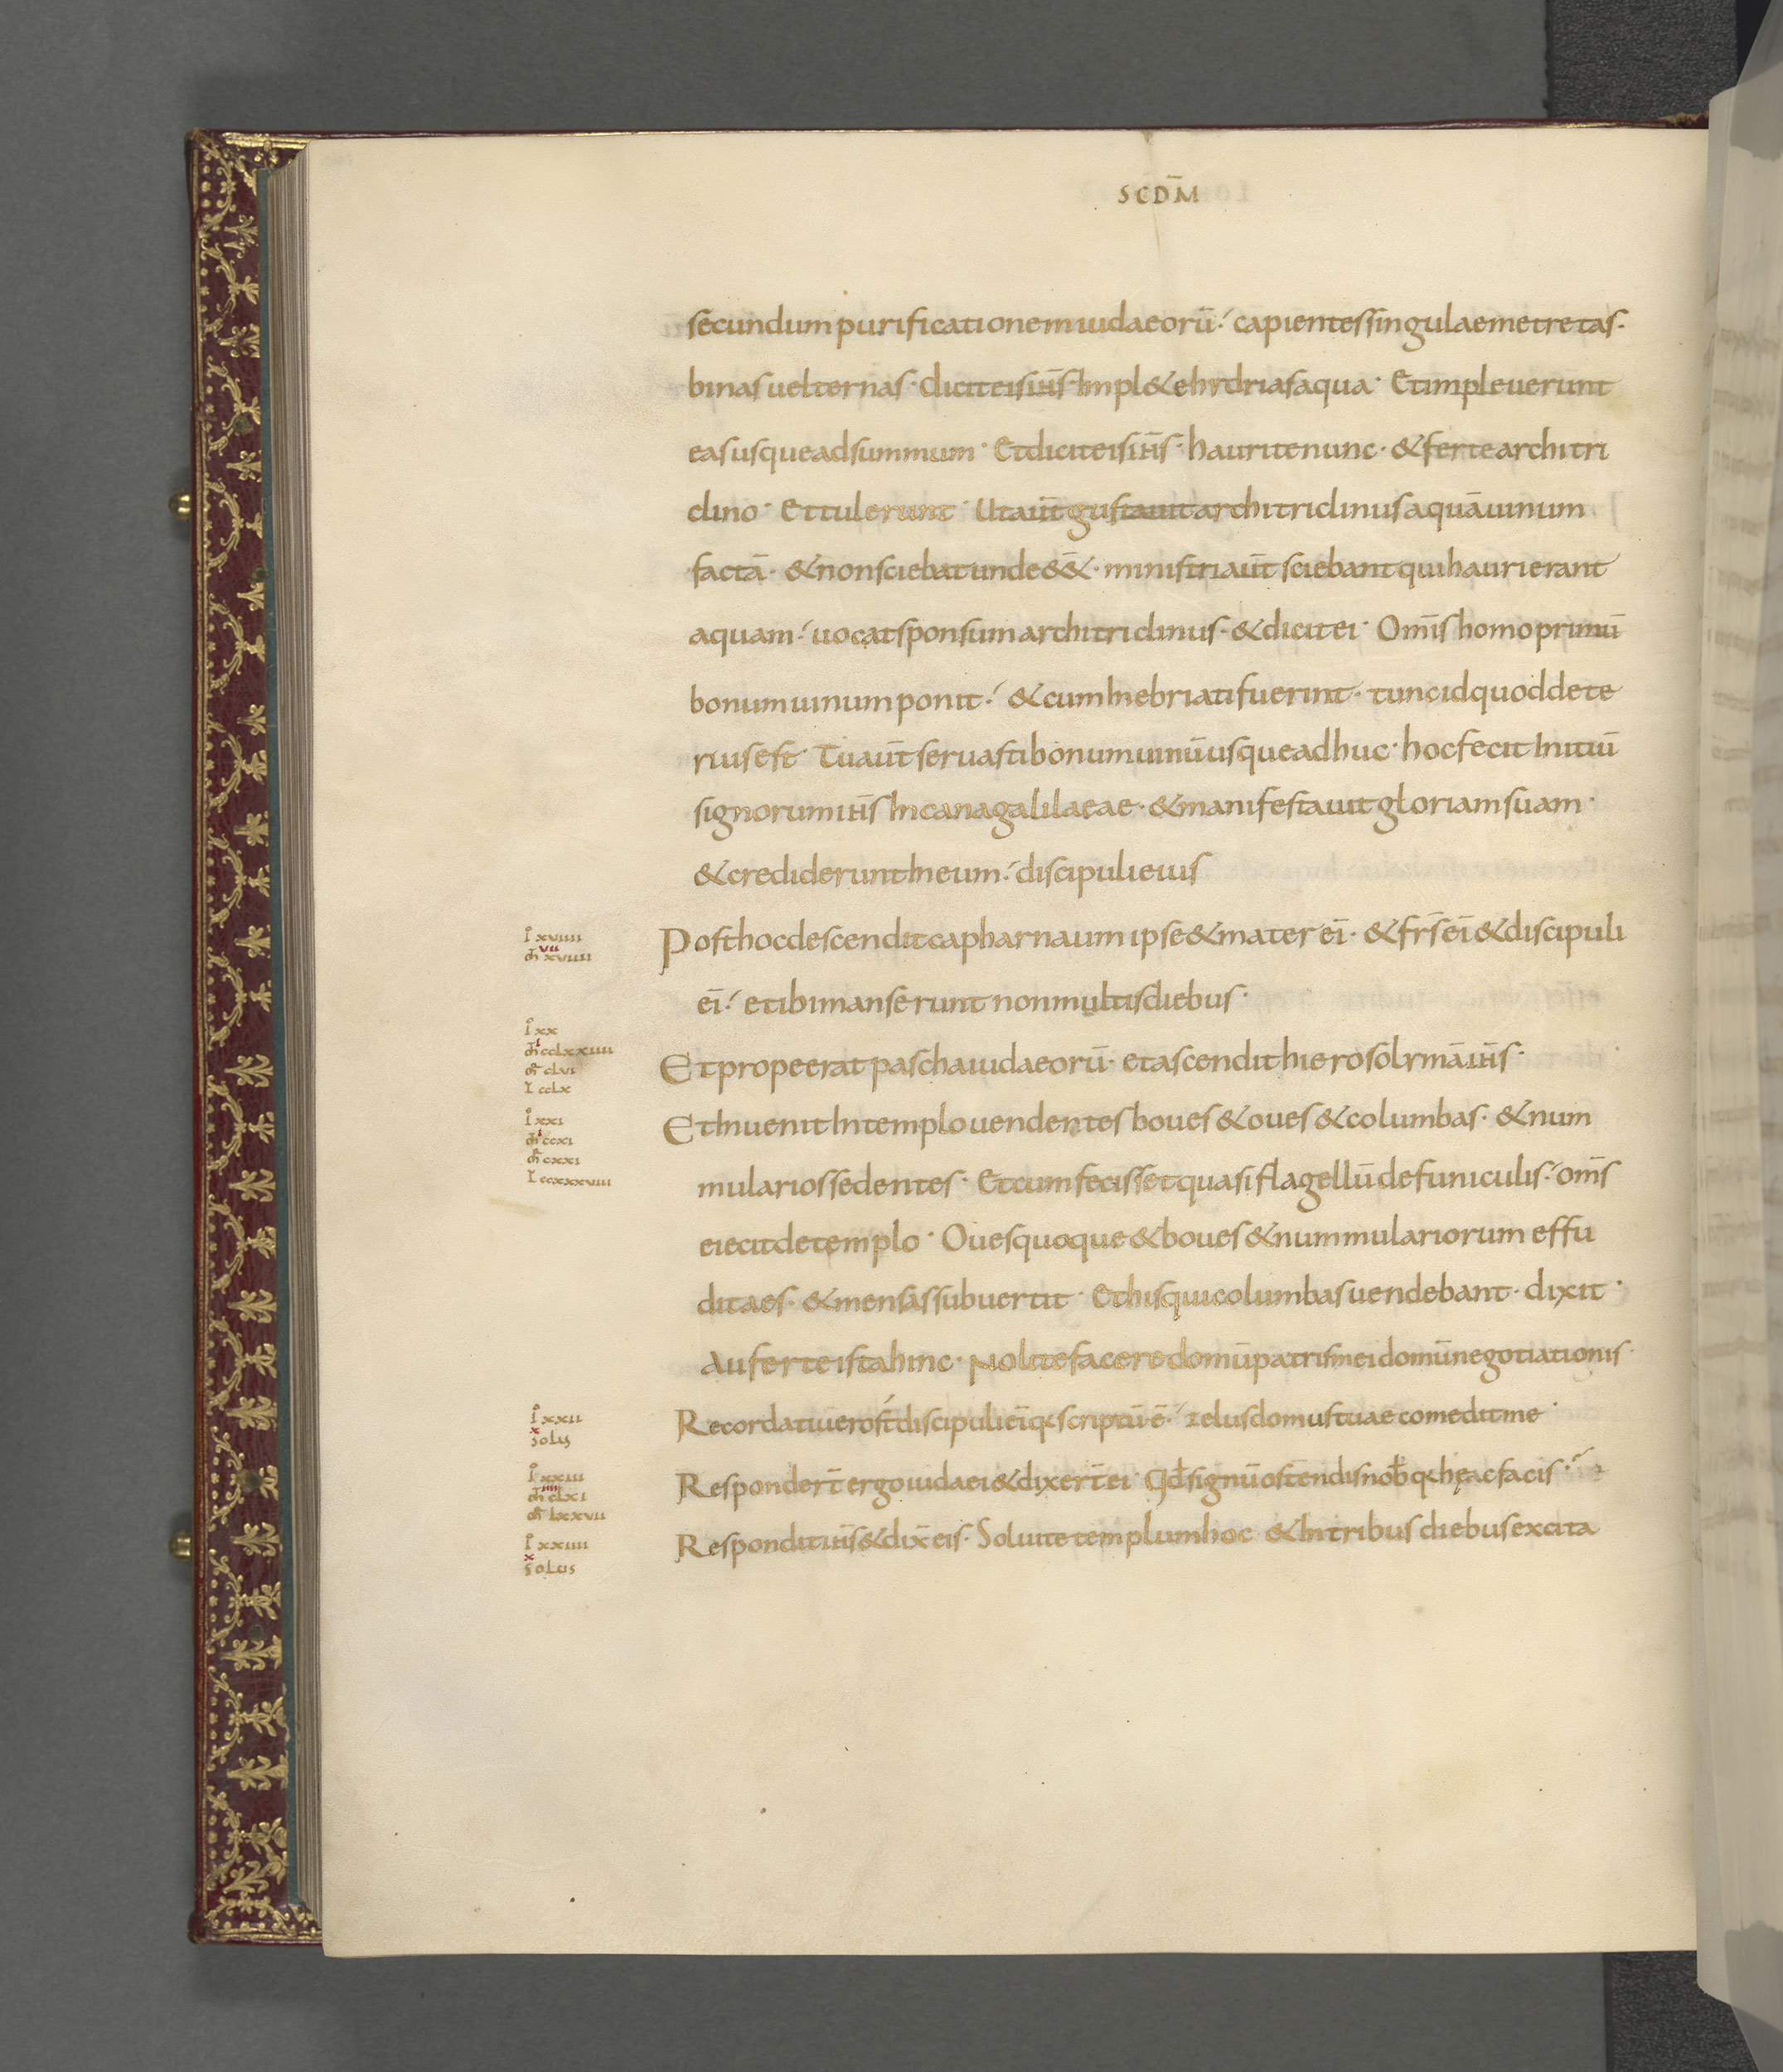 SCDM̄
secundum purificationem iudaeorū· capientes singulae metretas·
binas uel ternas· dicit eis ih̄s· Impl&e hydrias aqua· Et impleuerunt
eas usque ad summum· Et dicit eis ih̄s· haurite nunc· & ferte architri
clino· Et tulerunt· Ut aūt gustauit architriclinus aquā uinum
factā· & non sciebat unde e&̄· ministri aūt sciebant qui haurierant
aquam· uocat sponsum architriclinus· & dicit ei· Omīs homo primū
bonum uinum ponit· & cum Inebriati fuerint· tunc id quod dete
rius est· Tu aūt seruasti bonum uinū usque adhuc· hoc fecit Initiū
signorum ih̄s In cana galilaeae· & manifestauit gloriam suam·
& crediderunt In eum· discipuli eius
I xviiii
vii
m̄ xviiii
Post hoc descendit capharnaum ipse & mater eī· & fr̄s eī & discipuli
eī· et ibi manserunt non multis diebus·
I xx
i
m̄ cclxxiiii
m̄ clvi
L cclx
Et prope erat pascha iudaeorū· et ascendit hierosolymā ih̄s·
I xxi
i
m̄ ccxi
m̄ cxxi
L ccxxxviii
Et Inuenit In templo uendentes boues & oues & columbas· & num
mularios sedentes· Et cum fecisset quasi flagellū de funiculis· om̄s
eiecit de templo· Oues quoque & boues & nummulariorum effu
dit aes· & mensas subuertit· Et his qui columbas uendebant· dixit·
Auferte ista hinc· Nolite facere domū patris mei domū negotiationis·
I xxii
x
solus
Recordati uero st̄ discipuli eī qa scriptū ē· zelus domus tuae comedit me·
I xxiii
iiii
m̄ clxi
m̄ lxxvii
Responder̄t ergo iudaei & dixer̄t ei· Qd̄ signū ostendis nob̄ qa hęac facis·
I xxiiii
x
solus
Respondit ih̄s & dix̄ eis· Soluite templum hoc & In tribus diebus excita